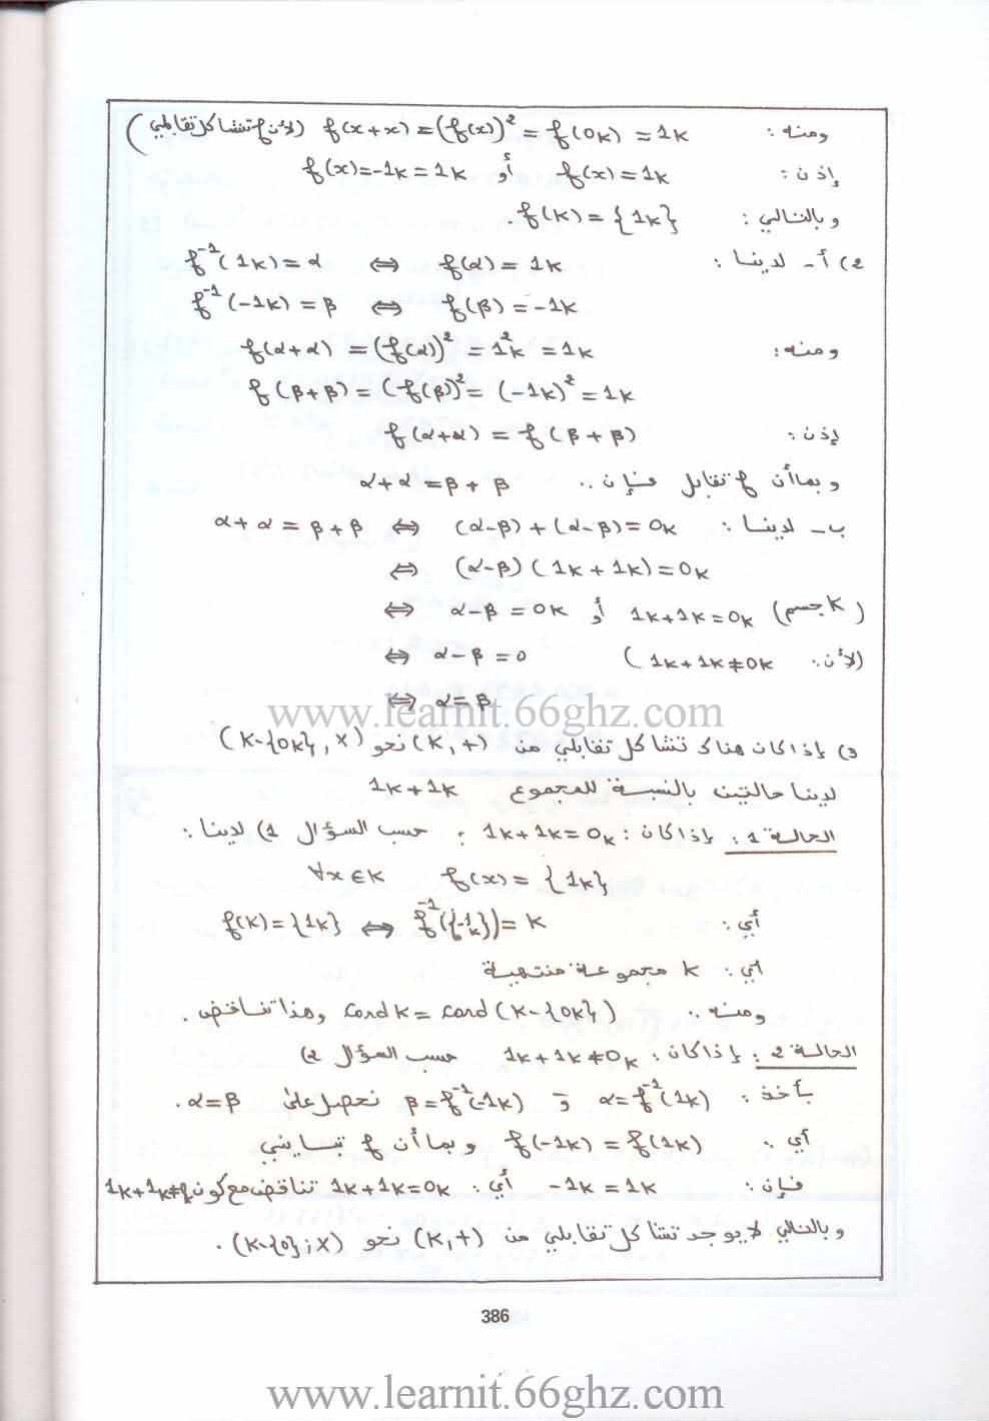 ومنه : f(x+x) = (f(x))² = f(0K) = 1K (لأن f تشاكل تقابلي)
إذن : f(x) = 1K أو f(x) = -1K = 1K
وبالتالي : f(K) = {1K}.
2) أ - لدينا : f(α) = 1K ⇔ f⁻¹(1K) = α
f(β) = -1K ⇔ f⁻¹(-1K) = β
ومنه : f(α+α) = (f(α))² = 1²K = 1K
f(β+β) = (f(β))² = (-1K)² = 1K
إذن : f(α+α) = f(β+β)
وبما أن f تقابل فإن : α+α = β+β
ب - لدينا : α+α = β+β ⇔ (α-β) + (α-β) = 0K
⇔ (α-β)(1K+1K) = 0K
⇔ α-β = 0K أو 1K+1K = 0K (K جسم)
⇔ α-β = 0 (لأن : 1K+1K ≠ 0K)
⇔ α = β
www.learnit.66ghz.com
3) إذا كان هناك تشاكل تقابلي من (K,+) نحو (K-{0K},×)
لدينا حالتين بالنسبة للمجموع 1K+1K
الحالة 1 : إذا كان : 1K+1K = 0K : حسب السؤال 1) لدينا :
∀x∈K f(x) = {1K}
أي : f(K) = {1K} ⇔ f⁻¹({1K}) = K
أي : K مجموعة منتهية
ومنه : card K = card(K-{0K}) وهذا تناقض.
الحالة 2 : إذا كان : 1K+1K ≠ 0K حسب السؤال 2)
بأخذ : α = f⁻¹(1K) و β = f⁻¹(-1K) نحصل على α = β.
أي : f(-1K) = f(1K) وبما أن f تبايني
فإن : -1K = 1K أي : 1K+1K = 0K تناقض مع كون 1K+1K≠0
وبالتالي لا يوجد تشاكل تقابلي من (K,+) نحو (K-{0};×).
386
www.learnit.66ghz.com